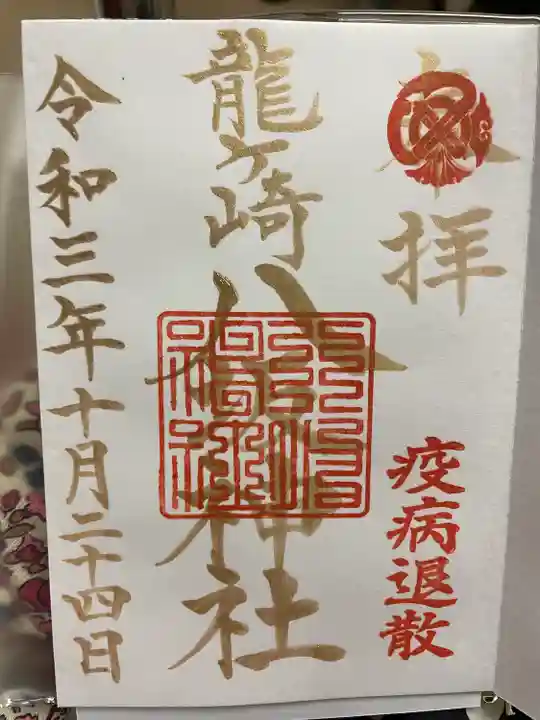 奉拝
疫病退散
龍ヶ崎八坂神社
令和三年十月二十四日